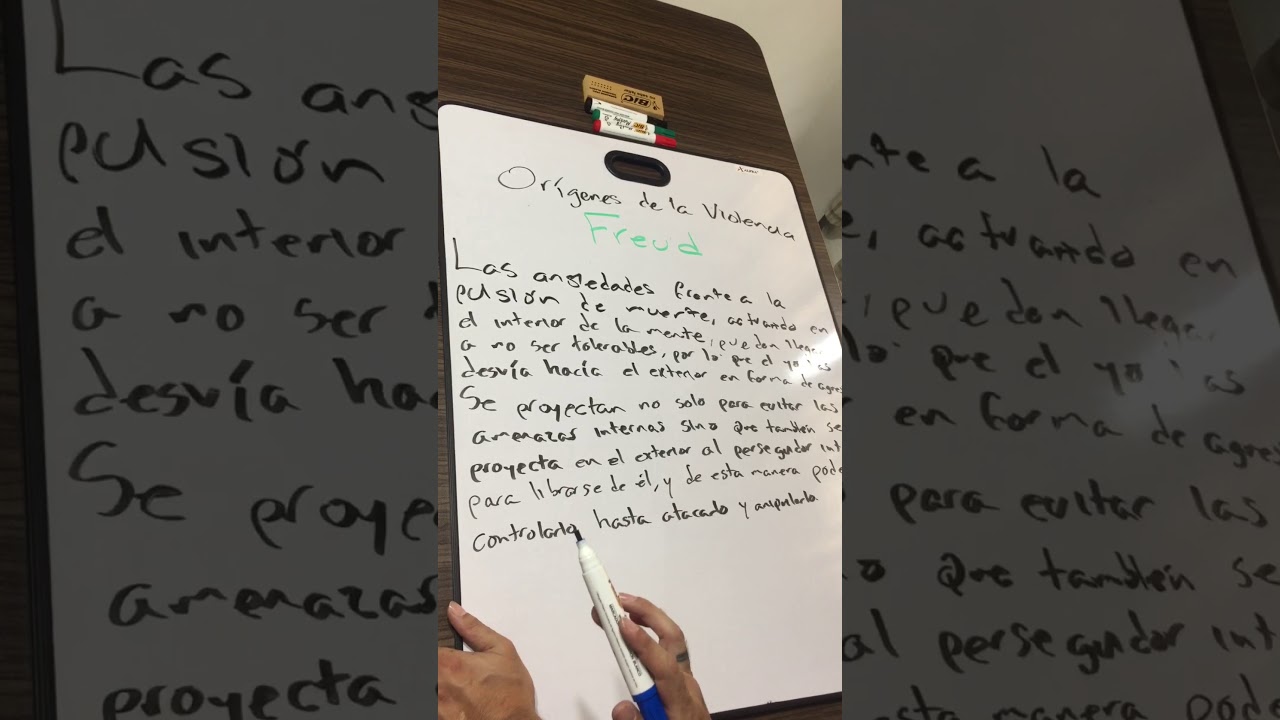 BIC
Orígenes de la Violencia
Freud
Las angedades frente a la
pulsión de muerte, actuando en
el interior de la mente, pueden llega
a no ser tolerables, por lo que el yo las
desvía hacia el exterior en forma de agres
Se proyectan no solo para evitar las
amenazas internas sino que también se
proyecta en el exterior al perseguidor int
para librarse de él, y de esta manera pode
controlarlo hasta atacarlo y